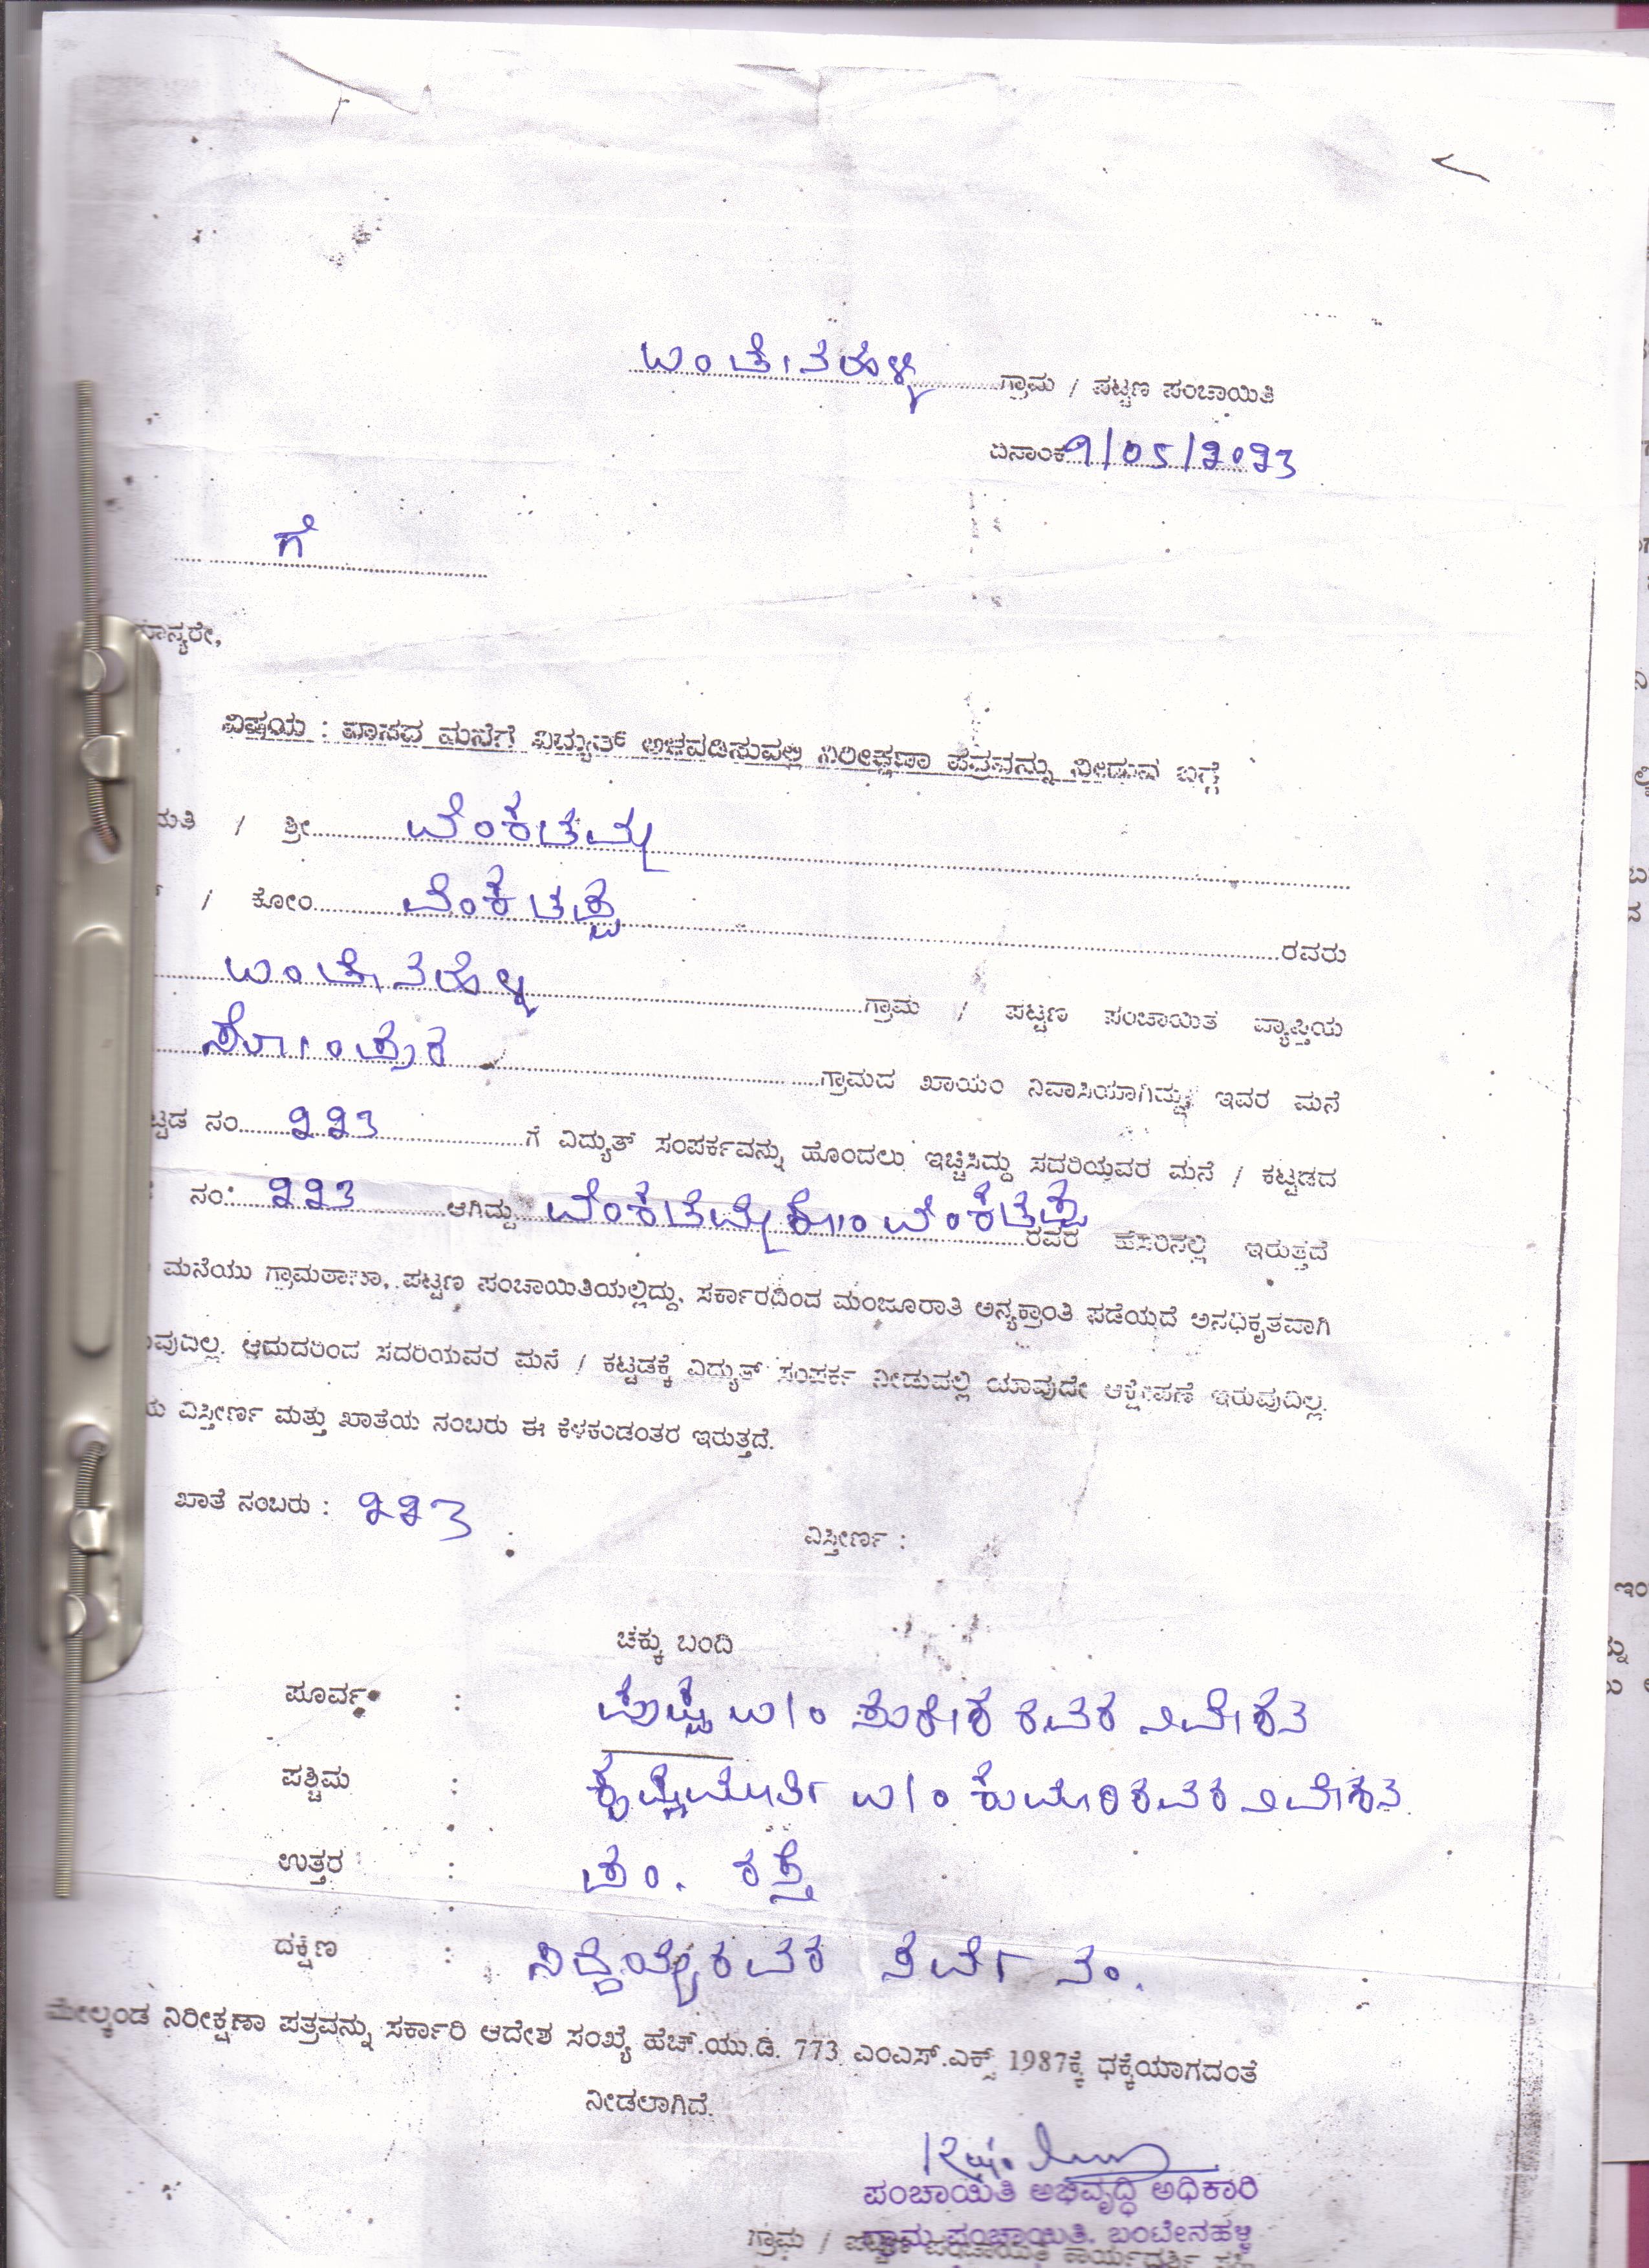 ಬಂಟೇನಹಳ್ಳಿ ಗ್ರಾಮ / ಪಟ್ಟಣ ಪಂಚಾಯಿತಿ
ದಿನಾಂಕ 9/05/2023
ಗೆ
ಮಾನ್ಯರೇ,
ವಿಷಯ : ವಾಸದ ಮನೆಗೆ ವಿದ್ಯುತ್ ಅಳವಡಿಸುವಲ್ಲಿ ನಿರೀಕ್ಷಣಾ ಪತ್ರವನ್ನು ನೀಡುವ ಬಗ್ಗೆ
ಮತಿ / ಶ್ರೀ ವೆಂಕಟಮ್ಮ
/ ಕೋಂ ವೆಂಕಟಪ್ಪ ರವರು
ಬಂಟೇನಹಳ್ಳಿ ಗ್ರಾಮ / ಪಟ್ಟಣ ಪಂಚಾಯಿತ ವ್ಯಾಪ್ತಿಯ
ಗ್ರಾಮದ ಖಾಯಂ ನಿವಾಸಿಯಾಗಿದ್ದು, ಇವರ ಮನೆ
ಟ್ಟಡ ನಂ 223 ಗೆ ವಿದ್ಯುತ್ ಸಂಪರ್ಕವನ್ನು ಹೊಂದಲು ಇಚ್ಚಿಸಿದ್ದು ಸದರಿಯವರ ಮನೆ / ಕಟ್ಟಡದ
ನಂ: 223 ಆಗಿದ್ದು ವೆಂಕಟಮ್ಮ ಕೋಂ ವೆಂಕಟಪ್ಪ ರವರ ಹೆಸರಿನಲ್ಲಿ ಇರುತ್ತದೆ
ಮನೆಯು ಗ್ರಾಮಠಾಣಾ, ಪಟ್ಟಣ ಪಂಚಾಯಿತಿಯಲ್ಲಿದ್ದು, ಸರ್ಕಾರದಿಂದ ಮಂಜೂರಾತಿ ಅನ್ಯಕ್ರಾಂತಿ ಪಡೆಯದೆ ಅನಧಿಕೃತವಾಗಿ
ವುದಿಲ್ಲ. ಆದುದರಿಂದ ಸದರಿಯವರ ಮನೆ / ಕಟ್ಟಡಕ್ಕೆ ವಿದ್ಯುತ್ ಸಂಪರ್ಕ ನೀಡುವಲ್ಲಿ ಯಾವುದೇ ಆಕ್ಷೇಪಣೆ ಇರುವುದಿಲ್ಲ.
ಯ ವಿಸ್ತೀರ್ಣ ಮತ್ತು ಖಾತೆಯ ನಂಬರು ಈ ಕೆಳಕಂಡಂತರ ಇರುತ್ತದೆ.
ಖಾತೆ ನಂಬರು : 223 ವಿಸ್ತೀರ್ಣ :
ಚಕ್ಕು ಬಂದಿ
ಪೂರ್ವ : ಪುಷ್ಪ ಬಿ/೦ ಸುರೇಶ ರವರ ನಿವೇಶನ
ಪಶ್ಚಿಮ : ಕೃಷ್ಣಮೂರ್ತಿ ಬಿ/೦ ಕುಮಾರಿ ರವರ ನಿವೇಶನ
ಉತ್ತರ : ಪಂ. ರಸ್ತೆ
ದಕ್ಷಿಣ : ಸಿದ್ದಯ್ಯರವರ ಸರ್ವೆ ನಂ.
ಮೇಲ್ಕಂಡ ನಿರೀಕ್ಷಣಾ ಪತ್ರವನ್ನು ಸರ್ಕಾರಿ ಆದೇಶ ಸಂಖ್ಯೆ ಹೆಚ್.ಯು.ಡಿ. 773 ಎಂಎಸ್.ಎಕ್ಸ್ 1987ಕ್ಕೆ ಧಕ್ಕೆಯಾಗದಂತೆ
ನೀಡಲಾಗಿದೆ.
ಪಂಚಾಯಿತಿ ಅಭಿವೃದ್ಧಿ ಅಧಿಕಾರಿ
ಗ್ರಾಮ ಪಂಚಾಯಿತಿ, ಬಂಟೇನಹಳ್ಳಿ
ಗ್ರಾಮ / ಪಟ್ಟಣ ಪಂಚಾಯಿತಿ ಕಾರ್ಯದರ್ಶಿ